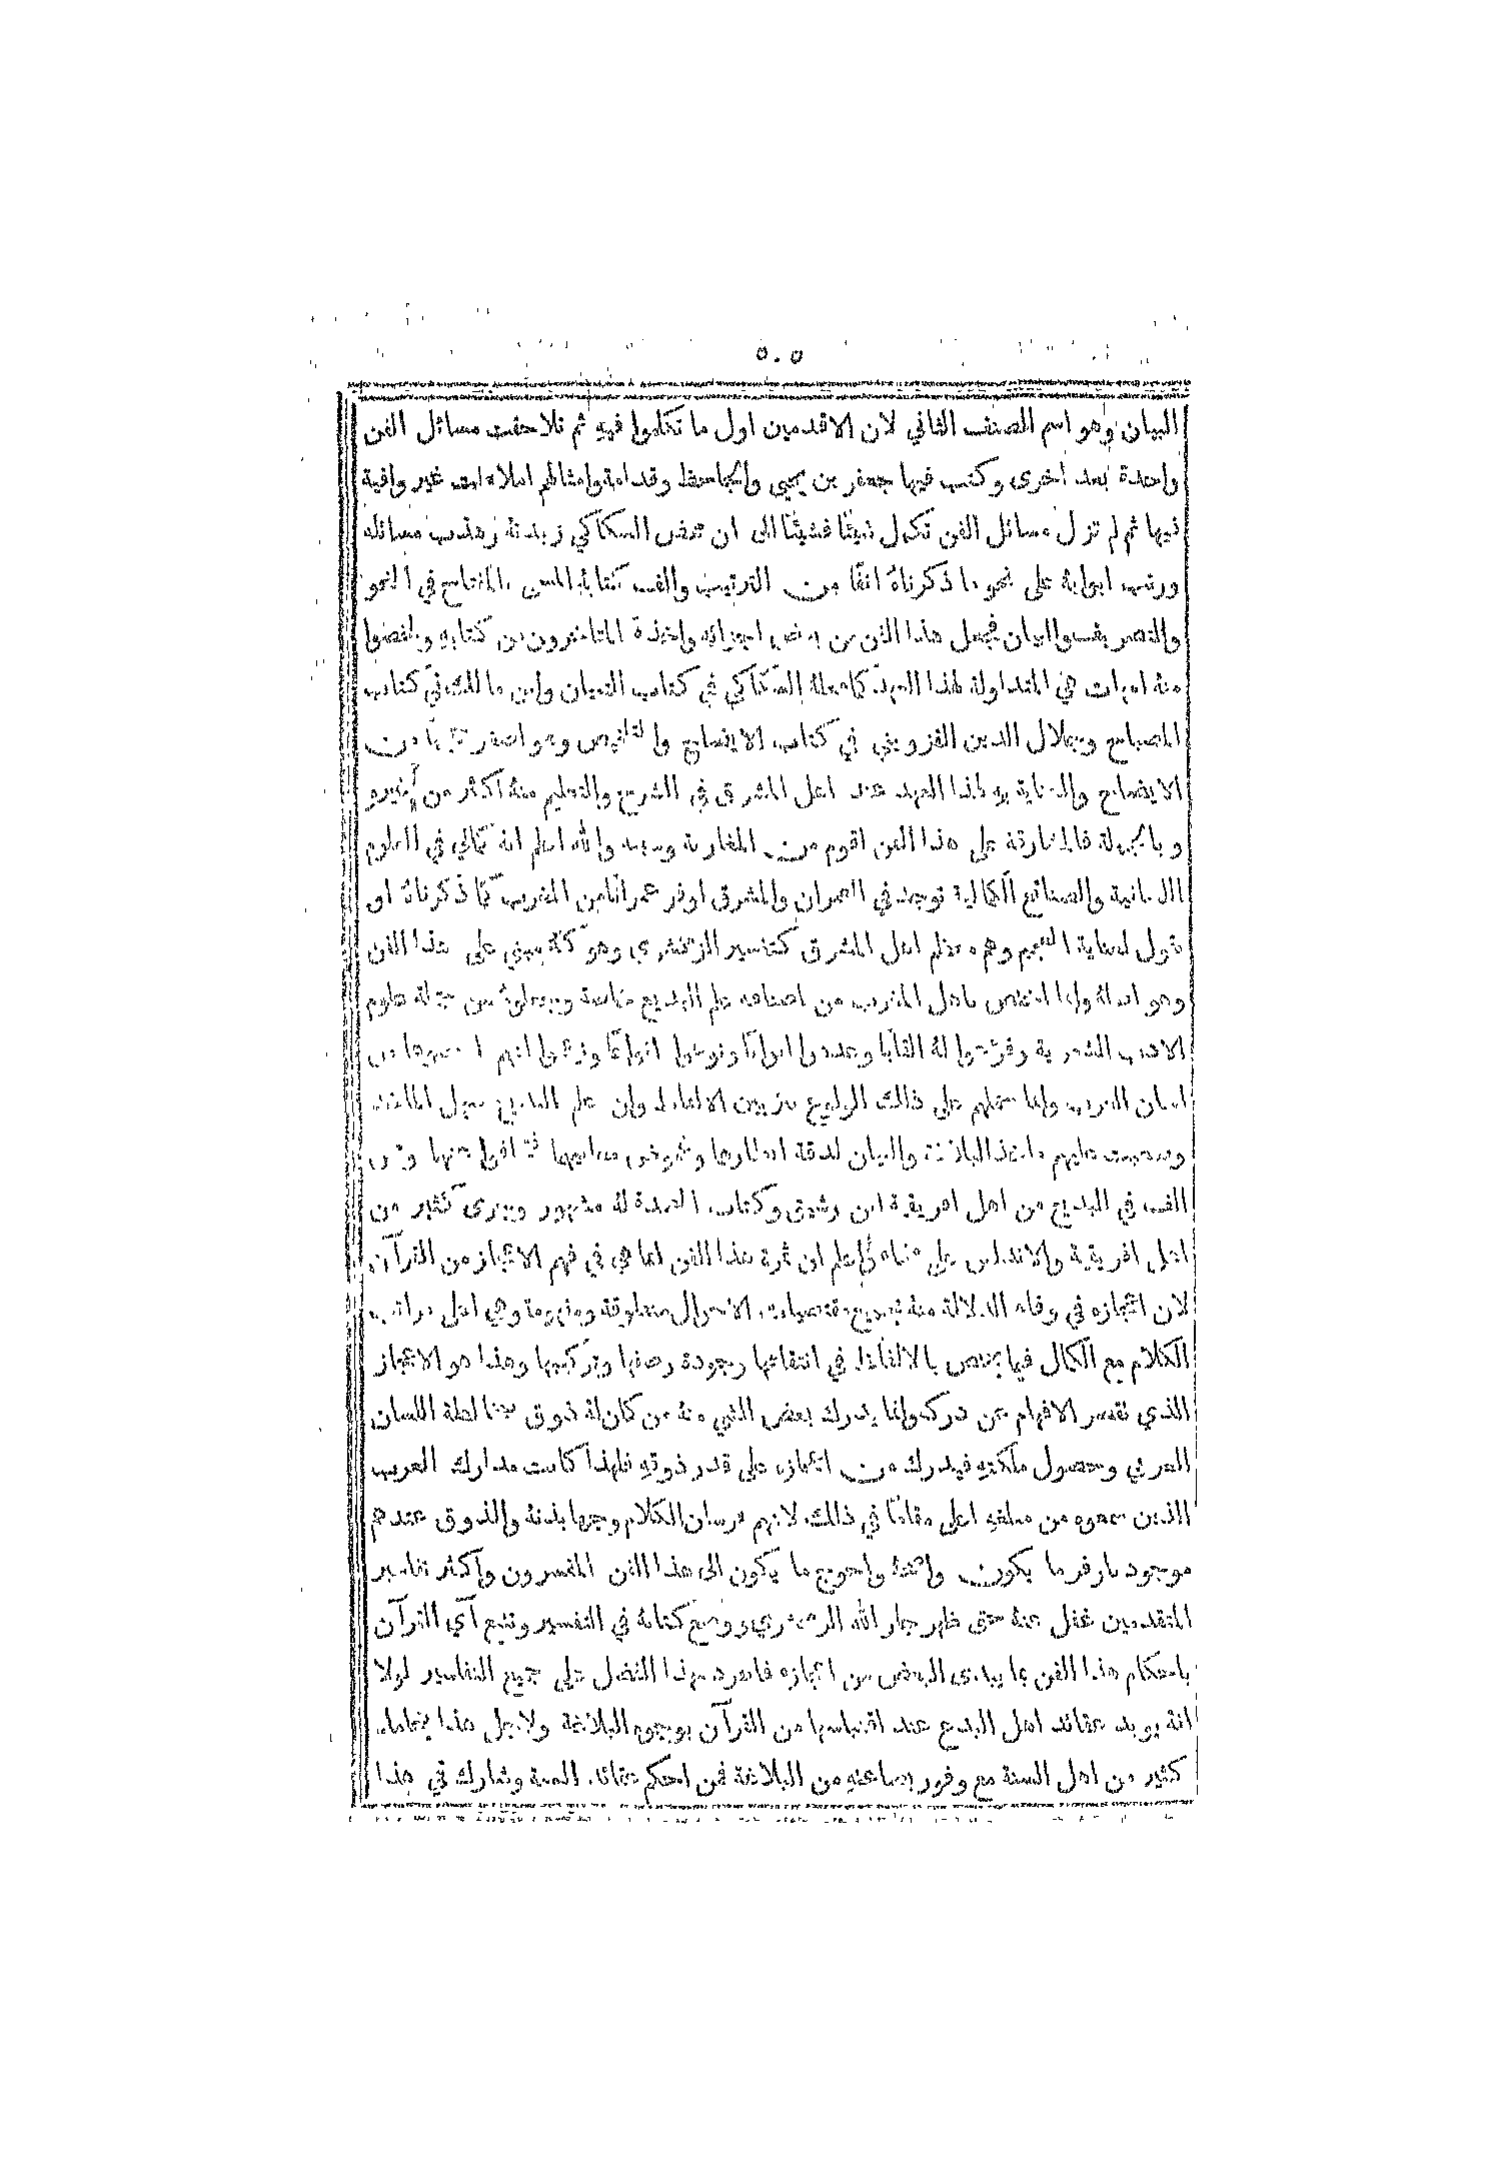 ٥٠٥
البيان وهو اسم الصنف الثاني لان الاقدمين اول ما تكلموا فيهِ ثم تلاحقت مسائل الفن
واحدة بعد اخرى وكتب فيها جعفر بن يحيى والجاحظ وقدامة وامثالهم املاءات غير وافية
فيها ثم لم تزل مسائل الفن تكمل شيئًا فشيئًا الى ان محض السكاكي زبدتهُ وهذب مسائلهُ
ورتب ابوابهُ على نحو ما ذكرناهُ انفًا من الترتيب والف كتابهُ المسمى بالمفتاح في النحو
والتصريف والبيان فجعل هذا الفن من بعض اجزائهِ واخذهُ المتاخرون من كتابهِ ولخصوا
منهُ امهات هي المتداولة لهذا العهد كما فعلهُ السكاكي في كتاب التبيان وابن مالك في كتاب
المصباح وجلال الدين القزويني في كتاب الايضاح والتلخيص وهو اصغر حجمًا من
الايضاح والعناية بهِ لهذا العهد عند اهل المشرق في الشرح والتعليم منهُ اكثر من غيرهِ
وبالجملة فالمشارقة على هذا الفن اقوم من المغاربة وسببه والله اعلم انهُ كمالي في العلوم
اللسانية والصنائع الكمالية توجد في العمران والمشرق اوفر عمرانًا من المغرب كما ذكرناهُ او
نقول لعناية العجم وهم معظم اهل المشرق كتفسير الزمخشري وهو كلهُ مبني على هذا الفن
وهو اصلهُ وانما اختص باهل المغرب من اصنافه علم البديع خاصة وجعلوهُ من جملة علوم
الادب الشعرية وفرّعوا لهُ القابًا وعددوا ابوابًا ونوعوا انواعًا وزعموا انهم احصوها من
لسان العرب وانما حملهم على ذلك الولوع بتزيين الالفاظ وان علم البديع سهل المأخذ
وصعبت عليهم مآخذ البلاغة والبيان لدقة انظارها وغموض معانيها فتجافوا عنها وممن
الف في البديع من اهل افريقية ابن رشيق وكتاب العمدة لهُ مشهور وجرى كثير من
اهل افريقية والاندلس على منحاه واعلم ان ثمرة هذا الفن انما هي في فهم الاعجاز من القرآن
لان اعجازه في وفاء الدلالة منهُ بجميع مقتضيات الاحوال منطوقة ومفهومة وهي اعلى مراتب
الكلام مع الكمال فيما يختص بالالفاظ في انتقائها وجودة رصفها وتركيبها وهذا هو الاعجاز
الذي تقصر الافهام عن دركهِ وانما يدرك بعض الشيء منهُ من كان لهُ ذوق بمخالطة اللسان
العربي وحصول ملكتهِ فيدرك من اعجازه على قدر ذوقهِ فلهذا كانت مدارك العرب
الذين سمعوه من مبلغهِ اعلى مقامًا في ذلك لانهم فرسان الكلام وجهابذتهُ والذوق عندهم
موجود باوفر ما يكون واصحهُ واحوج ما يكون الى هذا الفن المفسرون واكثر تفاسير
المتقدمين غفل عنهُ حتى ظهر جار الله الزمخشري ووضع كتابهُ في التفسير وتتبع آي القرآن
باحكام هذا الفن بما يبدى البعض من اعجازه فانفرد بهذا الفضل على جميع التفاسير لولا
انهُ يويد عقائد اهل البدع عند اقتباسها من القرآن بوجوه البلاغة ولاجل هذا يتحاماه
كثير من اهل السنة مع وفور بضاعتهِ من البلاغة فمن احكم عقائد السنة وشارك في هذا